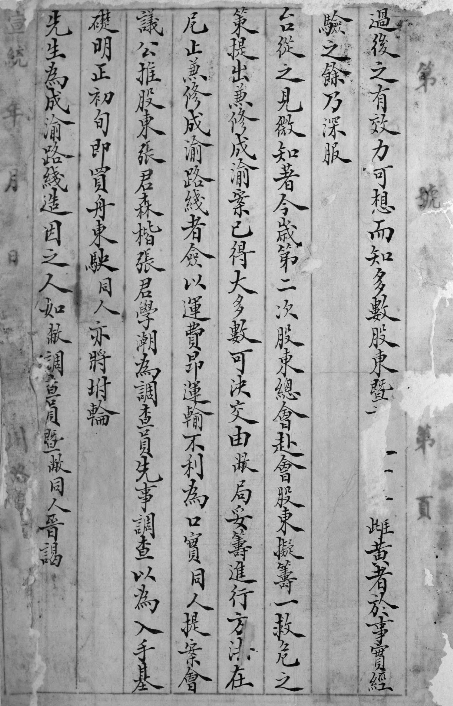 第 號 第 頁
過後之有效力可想而知多數股東暨 雌黄者於事實經
驗之餘乃深服
台從之見微知著今歲第二次股東總會赴會股東擬籌一救危之
策提出兼修成渝案已得大多數可決交由敝局妥籌進行方法在
尼止兼修成渝路綫者僉以運費昂運輸不利為口實同人提案會
議公推股東張君森楷張君學潮為調查員先事調查以為入手基
礎明正初旬即買舟東駛同人亦將坿輪
先生為成渝路綫造因之人如敝調查員暨敝同人晉謁
宣統 年 月 日